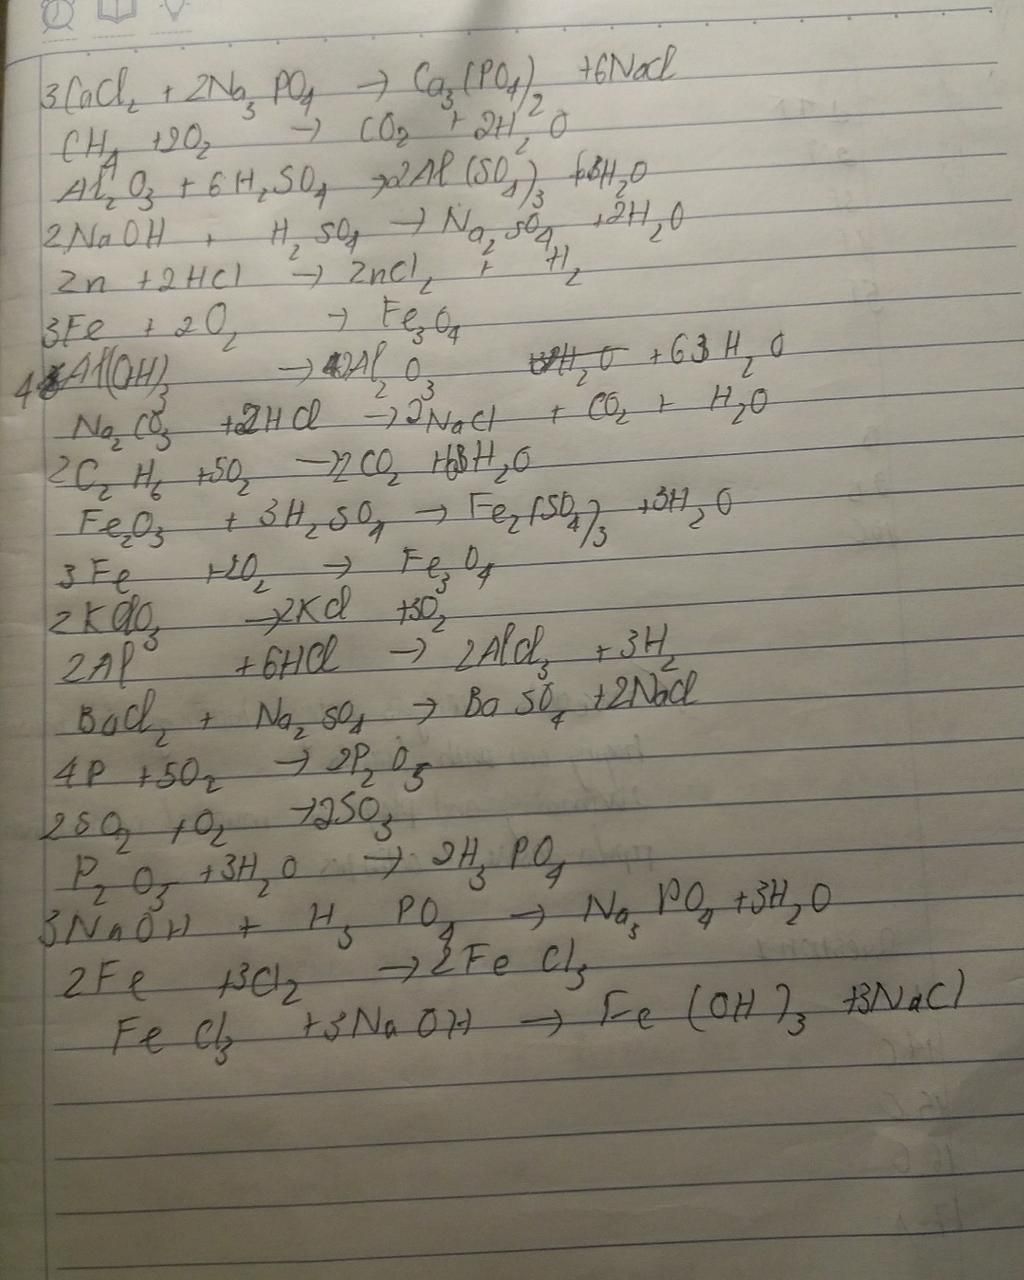 3CaCl₂ + 2Na₃PO₄ → Ca₃(PO₄)₂ +6NaCl
CH₄ +2O₂ → CO₂ + 2H₂O
Al₂O₃ + 6H₂SO₄ → 2Al(SO₄)₃ H₂O
2NaOH + H₂SO₄ → Na₂SO₄ +2H₂O
Zn +2HCl → ZnCl₂ + H₂
3Fe + 2O₂ → Fe₃O₄
4Al(OH)₃ → 2Al₂O₃ +63H₂O
Na₂CO₃ +2HCl → 2NaCl + CO₂ + H₂O
2C₂H₆ +5O₂ → CO₂ H₂O
Fe₂O₃ + 3H₂SO₄ → Fe₂(SO₄)₃ +3H₂O
3Fe +2O₂ → Fe₃O₄
2KClO₃ → 2KCl +3O₂
2Al +6HCl → 2AlCl₃ + 3H₂
BaCl₂ + Na₂SO₄ → BaSO₄ +2NaCl
4P +5O₂ → 2P₂O₅
2SO₂ +O₂ → 2SO₃
P₂O₅ +3H₂O → 2H₃PO₄
3NaOH + H₃PO₄ → Na₃PO₄ +3H₂O
2Fe +3Cl₂ → 2FeCl₃
FeCl₃ +3NaOH → Fe(OH)₃ +3NaCl